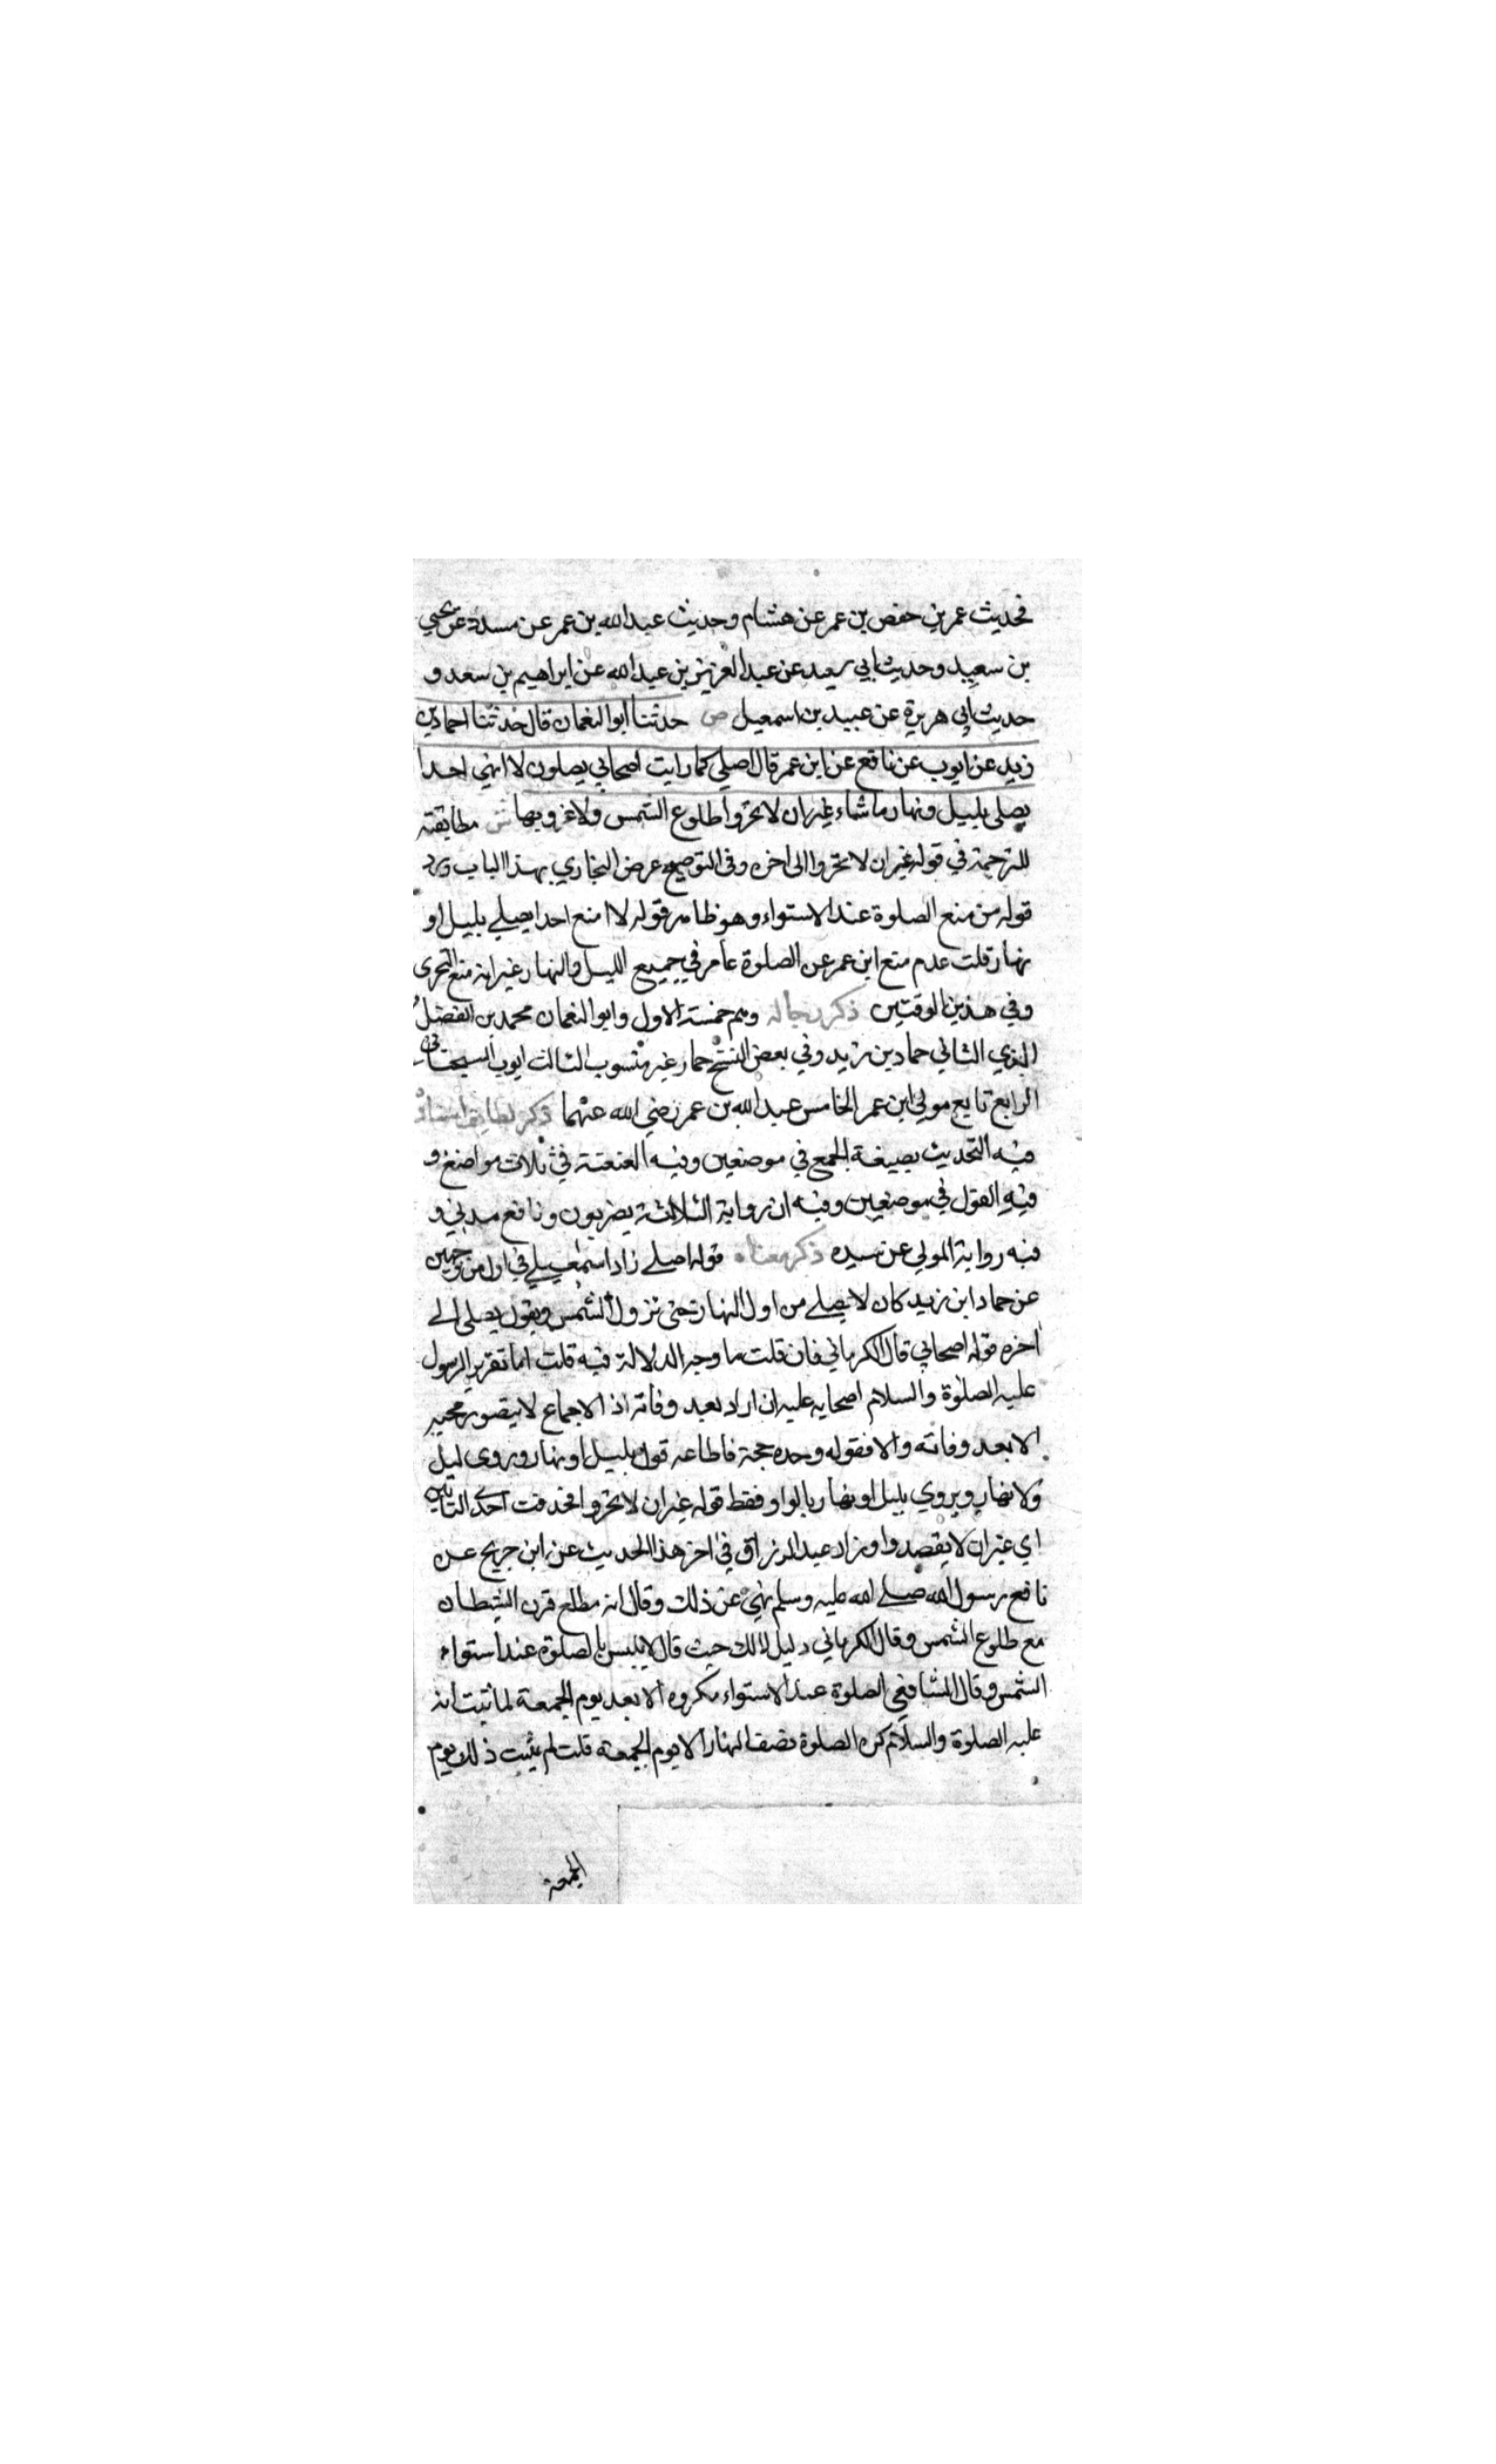 فحديث عمر بن حفص بن عمر عن هشام وحديث عبد الله بن عمر عن مسدد عن يحيى
بن سعيد وحديث ابي سعيد عن عبد العزيز بن عبد الله عن ابراهيم بن سعد و
حديث ابي هريرة عن عبيد بن اسمعيل ص حدثنا ابو النعمان قال حدثنا حماد بن
زيد عن ايوب عن نافع عن ابن عمر قال اصلي كما رايت اصحابي يصلون لا انهي احدا
يصلي بليل ونهار ما شاء غير ان لا تحروا طلوع الشمس ولا غروبها ش مطابقته
للترجمة في قوله غير ان لا تحروا الى اخره وفى التوضيح غرض البخاري بهذا الباب رد
قوله من منع الصلوة عند الاستواء وهو ظاهر قوله لا امنع احدا يصلي بليل او
نهار قلت عدم منع ابن عمر عن الصلوة عام في جميع الليل والنهار غير انه منع التحرى
وفي هذين الوقتين ذكر رجاله وهم خمسة الاول وابو النعمان محمد بن الفضل
الثاني حماد بن زيد وفي بعض النسخ حماد غير منسوب الثالث ايوب السختياني
الرابع نافع مولى ابن عمر الخامس عبد الله بن عمر رضي الله عنهما ذكر لطايف اسناده
فيه التحديث بصيغة الجمع في موضعين وفيه العنعنة في ثلاث مواضع و
فيه القول في موضعين وفيه ان رواية الثلاثة بصريون ونافع مدني و
فيه رواية المولى عن سيده ذكر معناه قوله اصلي زاد اسمعيلي في اوله من وجهين
عن حماد ابن زيد كان لا يصلي من اول النهار حتى تزول الشمس ويقول يصلى الى
اخره قوله اصحابي قال الكرماني فان قلت ما وجه الدلالة فيه قلت اما تقرير الرسول
عليه الصلوة والسلام اصحابه عليه ان اراد بعد وفاته اذ الاجماع لا يتصور حجيه
الا بعد وفاته والا فقوله وحده حجة قاطاعه قوله بليل او نهار ويروى ليل
ولا نهار ويروي بليل او نهار بالواو فقط قوله غير ان لا تحروا فحذفت احدى التائين
اي غير ان لا يقصدوا وزاد عبد الرزاق في اخر هذا الحديث عن ابن جريج عن
نافع رسول الله صلى الله عليه وسلم نهي عن ذلك وقال انه مطلع قرن الشيطان
مع طلوع الشمس وقال الكرماني دليل لمالك حيث قال لا باس بالصلوة عند استواء
الشمس وقال الشافعي الصلوة عند الاستواء مكروه الا بعد يوم الجمعة لما ثبت انه
عليه الصلوة والسلام كره الصلوة نصف النهار الا يوم الجمعة قلت لم يثبت ذلك يوم
الجمعة